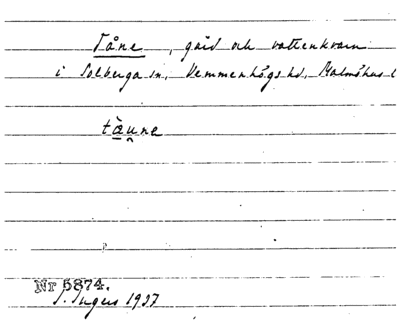 Tåne, gård och vattenkvarn
i Solberga sn, Vemmenhögs hd, Malmöhus l
tàu̯ne
Nr 5874.
S. Ingers 1937